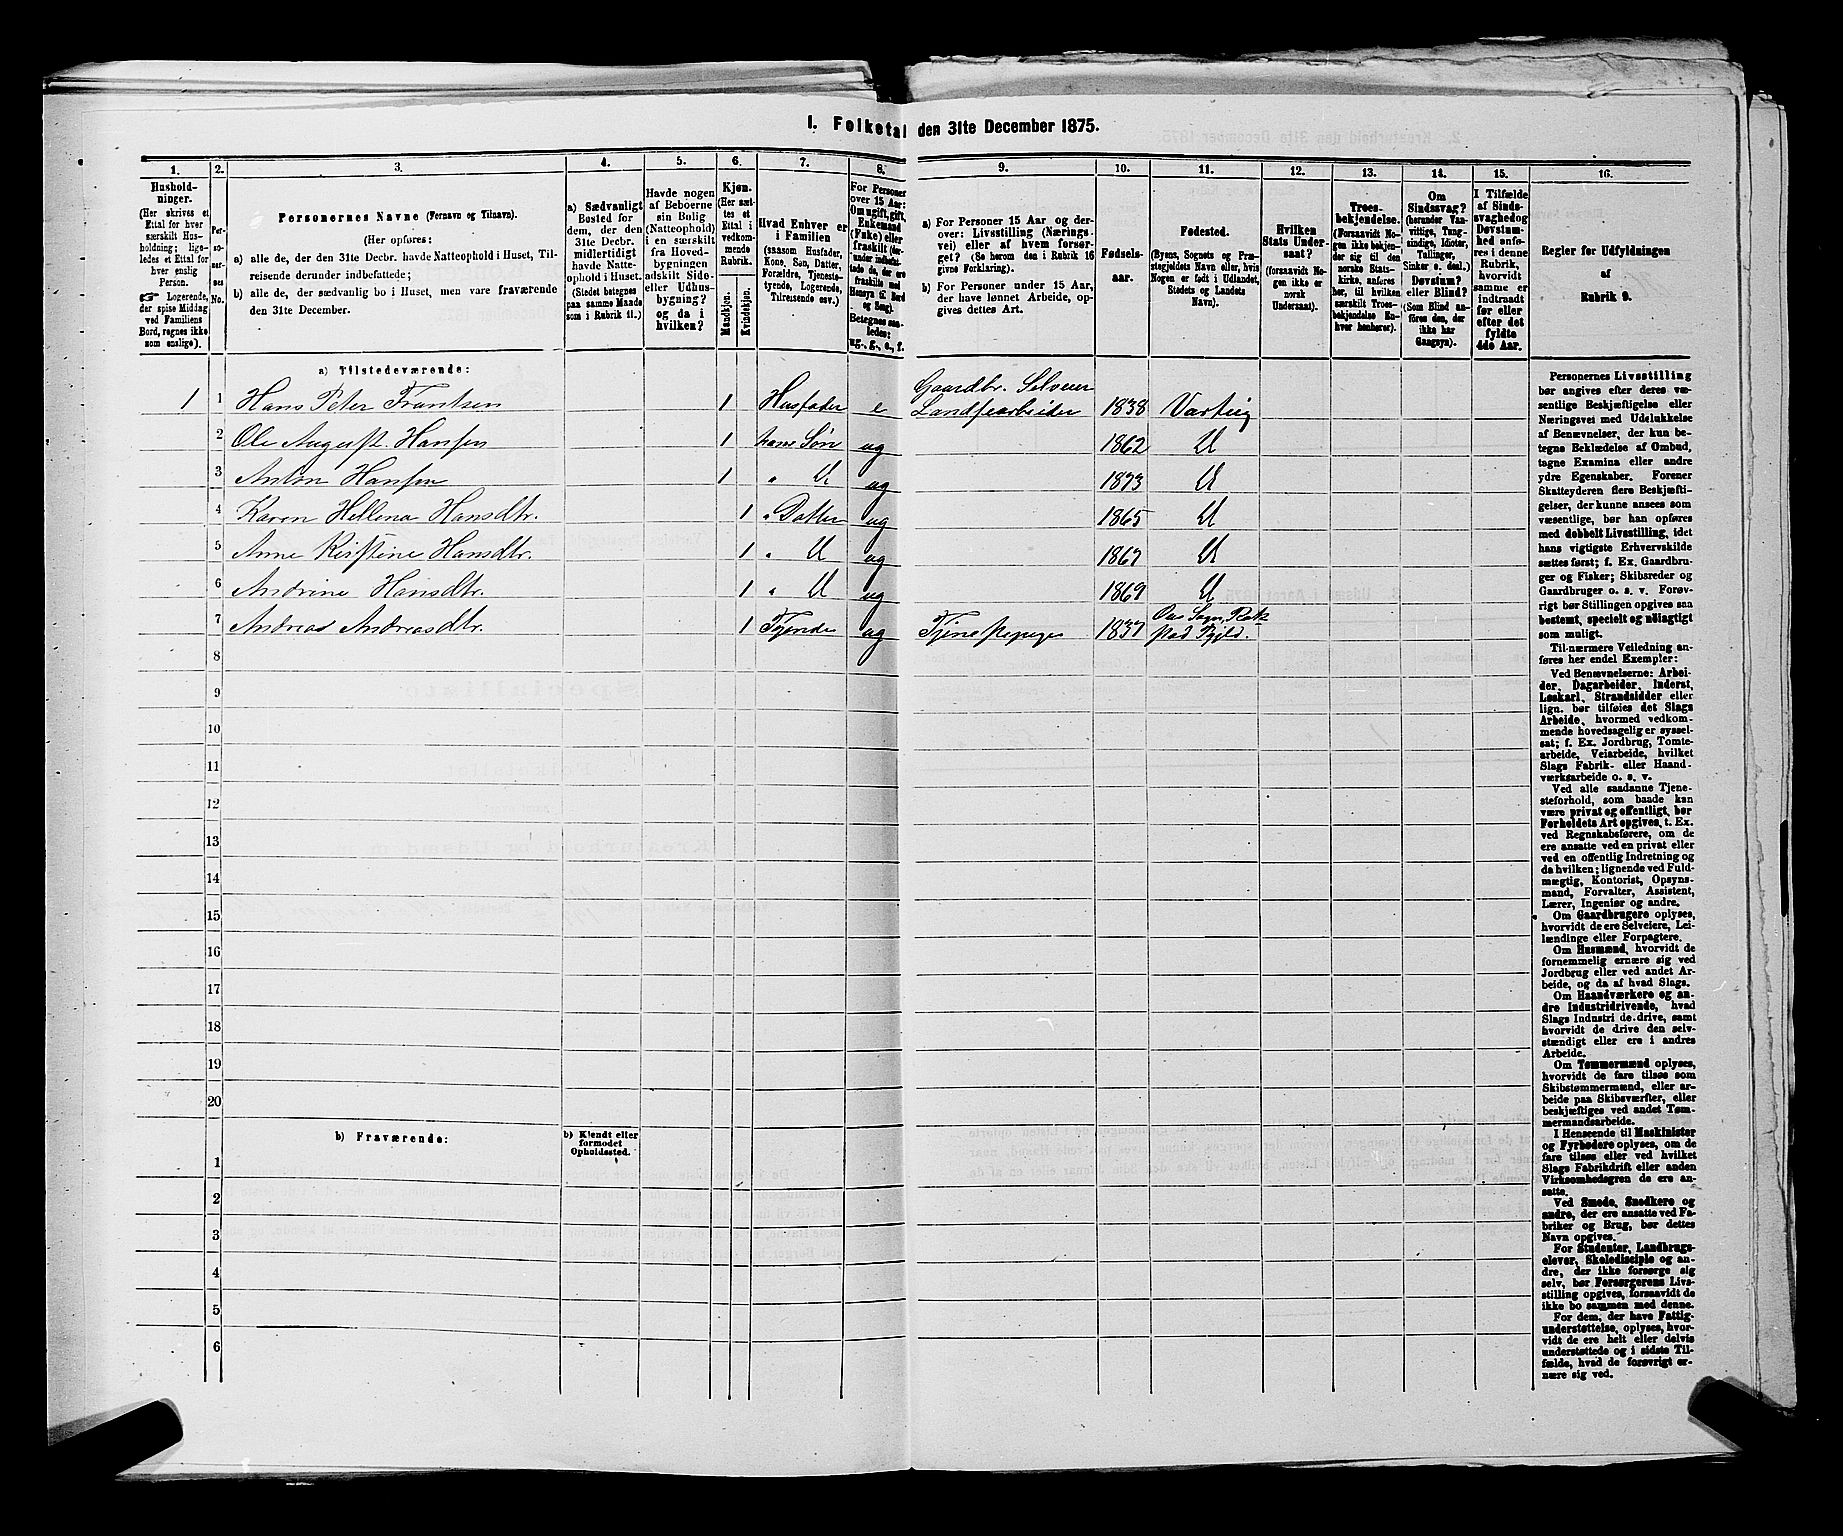 I. Folketal den 31te December 1875.
1. 2. 3. 4. 5. 6. 7. 8. 9. 10. 11. 12. 13. 14. 15. 16.
Hushold-
ninger.
(Her skrives et
Ettal for hver
særskilt Hus-
holdning; lige-
ledes et Ettal for
hver enslig
Person.
Logerende,
der spise Middag
ved Familiens
Bord, regnes ikke
som enslige).
Per-
so-
ner-
nes
No.
Personernes Navne (Fornavn og Tilnavn).
(Her opføres:
a) alle de, der den 31te Decbr. havde Natteophold i Huset, Til-
reisende derunder indbefattede;
b) alle de, der sædvanlig bo i Huset, men vare fraværende
den 31te December.
a) Sædvanligt
Bosted for
dem, der den
31te Decbr.
midlertidigt
havde Natte-
ophold i Huset.
(Stedet betegnes
paa samme Maade
som i Rubrik 11.)
Havde nogen
af Beboerne
sin Bolig
(Natteophold)
i en særskilt
fra Hoved-
bygningen
adskilt Side-
eller Udhus-
bygning?
og da i
hvilken?
Kjøn.
(Her sæt-
tes et
Ettal i
vedkom-
mende
Rubrik.
Mandkjøn.
Kvindekjøn.
Hvad Enhver er
i Familien
(saasom Husfader,
Kone, Søn, Datter,
Forældre, Tjeneste-
tyende, Logerende,
Tilreisende osv.)
For Personer
over 15 Aar:
Om ugift, gift,
Enkemand
(Enke) eller
fraskilt (her-
under indbefat-
tede de, der ere
fraskilte med
Hensyn til Bord
og Seng).
Betegnes saa-
ledes:
ug., g., e., f.
a) For Personer 15 Aar og der-
over: Livsstilling (Nærings-
vei) eller af hvem forsør-
get? (Se herom den i Rubrik 16
givne Forklaring).
b) For Personer under 15 Aar,
der have lønnet Arbeide, op-
gives dettes Art.
Fødsels-
aar.
Fødested.
(Byens, Sognets og Præ-
stegjeldets Navn eller, hvis
Nogen er født i Udlandet,
Stedets og Landets
Navn).
Hvilken
Stats Under-
saat?
(forsaavidt No-
gen ikke er
norsk
Undersaat).
Troes-
bekjendelse.
(Forsaavidt No-
gen ikke bekjen-
der sig til den
norske Stats-
kirke, anføres
her, til hvilken
særskilt Troes-
bekjendelse En-
hver henhører).
Om
Sindssvag?
(herunder Van-
vittige, Tung-
sindige, Idioter,
Tullinger,
Sinker o. desl.)
Døvstum?
eller Blind?
(Som Blind an-
føres den, der
ikke har
Gangsyn).
I Tilfælde
af Sinds-
svaghed og
Døvstum-
hed anfø-
res i denne
Rubrik,
hvorvidt
samme er
indtraadt
før eller
efter det
fyldte
4de Aar.
Regler for Udfyldningen
af
Rubrik 9.
a) Tilstedeværende:
1 1 Hans Peter Frantsen 1 Husfader e Gaardbr. Selveier Landjearbeider 1838 Varteig
2 Ole August Hansen 1 hans Søn ug 1862 U
3 Anton Hansen 1 " U ug 1873 U
4 Karen Hellena Hansdtr. 1 " Datter ug 1865 U
5 Anne Kristine Hansdtr. 1 " U ug 1867 U
6 Andrine Hansdtr. 1 " U ug 1869 U
7 Andrea Andreasdtr. 1 Tjende ug Tjenestepige 1837
8
9
10
11
12
13
14
15
16
17
18
19
20
b) Fraværende:
b) Kjendt eller
formodet
Opholdssted.
1
2
3
4
5
6
Personernes Livsstilling
bør angives efter deres væ-
sentlige Beskjæftigelse eller
Næringsvei med Udelukkelse
af Benævnelser, der kun be-
tegne Beklædelse af Ombud,
tagne Examina eller andre
ydre Egenskaber. Forener
Skatteyderen flere Beskjæfti-
gelser, der kunne ansees som
væsentlige, bør han opføres
med dobbelt Livsstilling, idet
hans vigtigste Erhvervskilde
sættes først; f. Ex. Gaardbru-
ger og Fisker; Skibsreder og
Gaardbruger o. s. v. Forøv-
rigt bør Stillingen opgives saa
bestemt, specielt og nøiagtigt
som muligt.
Til nærmere Veiledning an-
føres her endel Exempler:
Ved Benævnelserne: Arbei-
der, Dagarbeider, Inderst,
Løskarl, Strandsidder eller
lign. bør tilføies det Slags
Arbeide, hvormed vedkom-
mende hovedsagelig er syssel-
sat; f. Ex. Jordbrug, Tomte-
arbeide, Veiarbeide, hvilket
Slags Fabrik- eller Haand-
værksarbeide o. s. v.
Ved alle saadanne Tjene-
steforhold, som baade kan
være privat og offentligt, bør
Forholdets Art opgives, t. Ex.
ved Regnskabsførere, om de
ere ansatte ved en privat eller
ved en offentlig Indretning og
da hvilken; lignende ved Fuld-
mægtig, Kontorist, Opsyns-
mand, Forvalter, Assistent,
Lærer, Ingeniør og andre.
Om Gaardbrugere oplyses,
hvorvidt de ere Selveiere, Lei-
lændinge eller Forpagtere.
Om Husmænd, hvorvidt de
fornemmelig ernære sig ved
Jordbrug eller ved andet Ar-
beide, og da af hvad Slags.
Om Haandværkere og an-
dre Industridrivende, hvad
Slags Industri de drive, samt
hvorvidt de drive den selv-
stændigt eller ere i andres
Arbeide.
Om Tømmermænd oplyses,
hvorvidt de fare tilsøs som
Skibstømmermænd, eller ar-
beide paa Skibsværfter, eller
beskjæftiges ved andet Tøm-
mermandsarbeide.
I Henseende til Maskinister
og Fyrbødere oplyses, om de
fare tilsøs eller ved hvilket
Slags Fabrikdrift eller anden
Virksomhedsgren de ere an-
satte.
Ved Smede, Snedkere og
andre, der ere ansatte ved Fa-
briker og Brug, bør dettes
Navn opgives.
For Studenter, Landbrugs-
elever, Skoledisciple og an-
dre, der ikke forsørge sig
selv, bør Forsørgerens Livs-
stilling opgives, forsaavidt de
ikke bo sammen med denne.
For dem, der have Fattig-
understøttelse, oplyses, hvor-
vidt de ere helt eller delvis
understøttede og i sidste Til-
fælde, hvad de forøvrigt er-
nære sig ved.